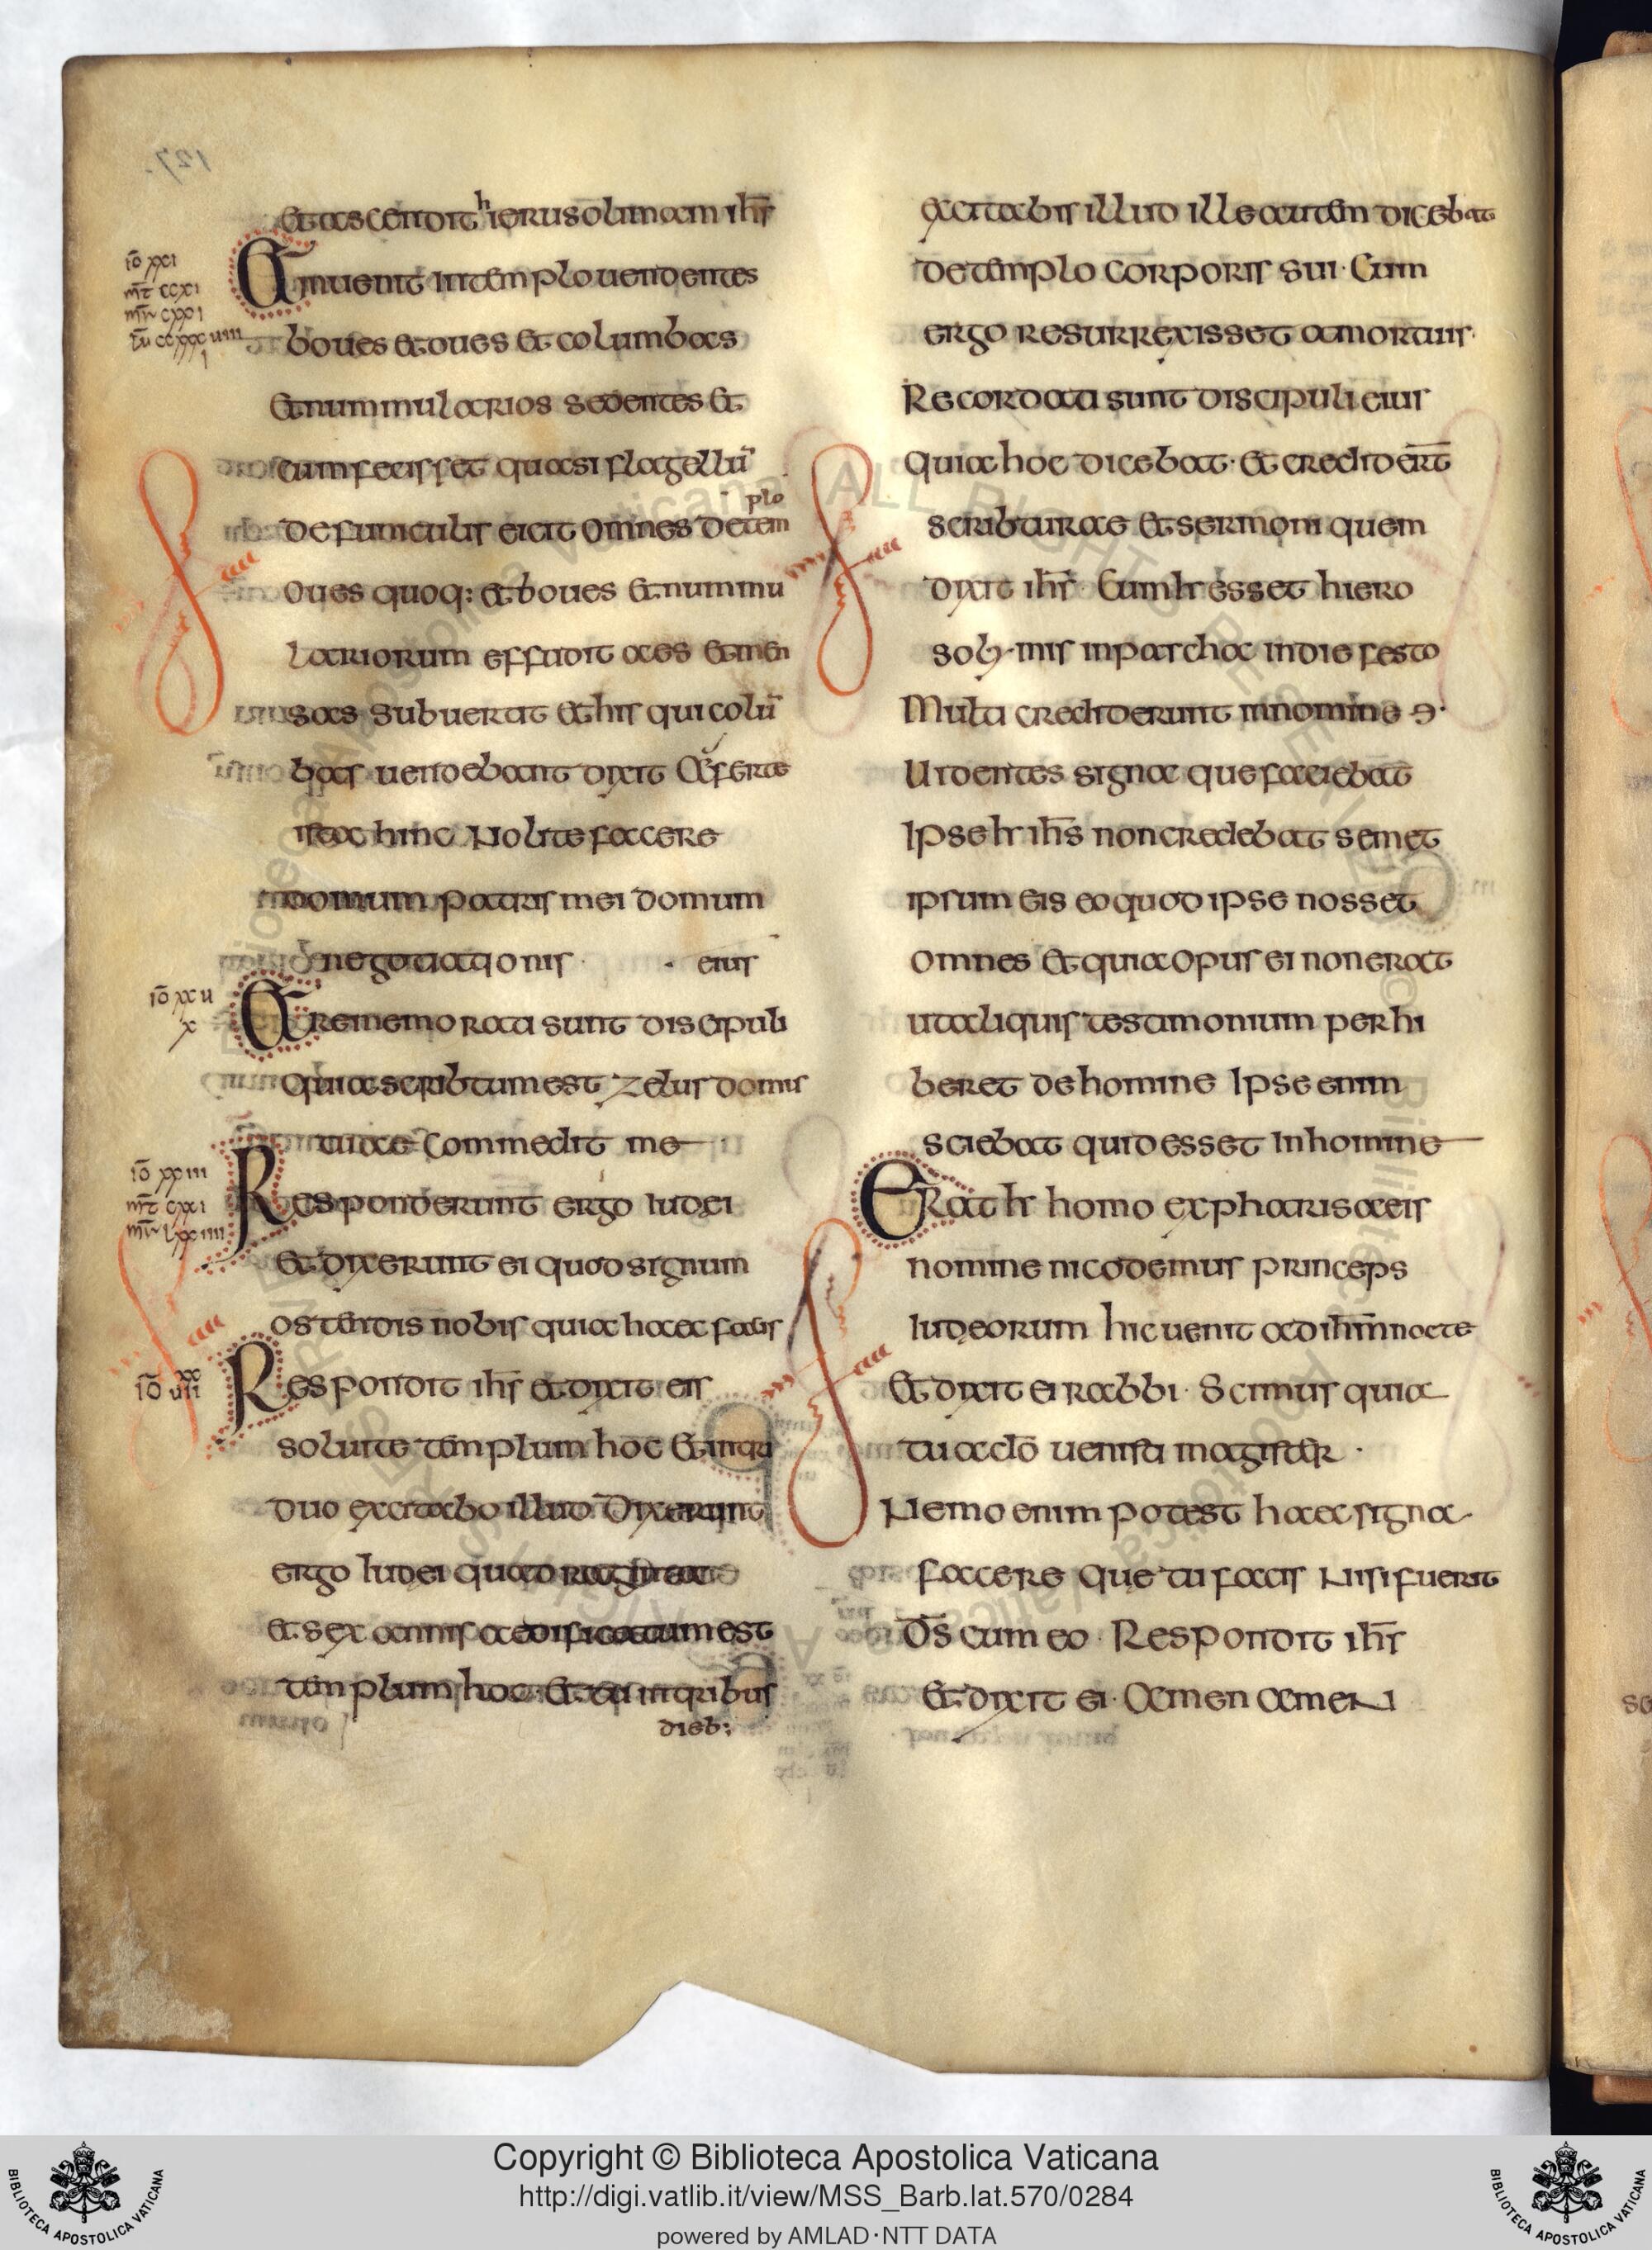 127.
et ascendit hierusolimam ihs̅
io̅ xxi
mt̅ ccxi
mr̅ cxxi
lu̅ ccxxxuiiii
i
Et inuenit in templo uendentes
boues et oues et columbas
et nummularios sedentes et
cum fecisset quasi flagellu̅
de funiculis eicit omnes de tem
plo
oues quoq: et boues et nummu
lariorum effudit aes et men
sas subuertit et his qui colu̅
bas uendebant dixit Auferte
istac hinc Nolite facere
domum patris mei domum
negotiationis · eius
io̅ xxu
x
Et rememorati sunt discipuli
quia scribtum est zelus domus
tuae commedit me
io̅ xxiii
mt̅ cxxi
mr̅ lxxiiii
Responderunt ergo iudei
et dixerunt ei quod signum
ostendis nobis quia haec facis
io̅ xxuii
Respondit ihs̅ et dixit eis
soluite templum hoc et in tri
duo excitabo illud Dixerunt
ergo iudei quadraginta
et sex annis aedificatum est
templum hoc et tu in tribus
dieb;
excitabis illud ille autem dicebat
de templo corporis sui · Cum
ergo resurrexisset a mortuis ·
Recordati sunt discipuli eius
quia hoc dicebat · et credider̅t
scribturae et sermoni quem
dixit ihs̅ · Cum hr esset hiero
soly·mis in pascha in die festo
Multi crediderunt in nomine ɘ·
Uidentes signa que faciebat
Ipse hr ihs̅ non credebat semet
ipsum eis eo quod ipse nosset
omnes et quia opus ei non erat
ut aliquis testimonium perhi
beret de homine Ipse enim
sciebat quid esset in homine
Erat hr homo ex pharisaeis
nomine nicodemus princeps
iudeorum hic uenit ad ihm̅ nocte
Et dixit ei rabbi · Scimus quia
tu a do̅ uenisti magister ·
Nemo enim potest haec signa
facere que tu facis Nisi fuerit
Ds̅ cum eo · Respondit ihs̅
et dixit ei · Amen amen
Copyright © Biblioteca Apostolica Vaticana
http://digi.vatlib.it/view/MSS_Barb.lat.570/0284
powered by AMLAD·NTT DATA
BIBLIOTECA APOSTOLICA VATICANA
BIBLIOTECA APOSTOLICA VATICANA